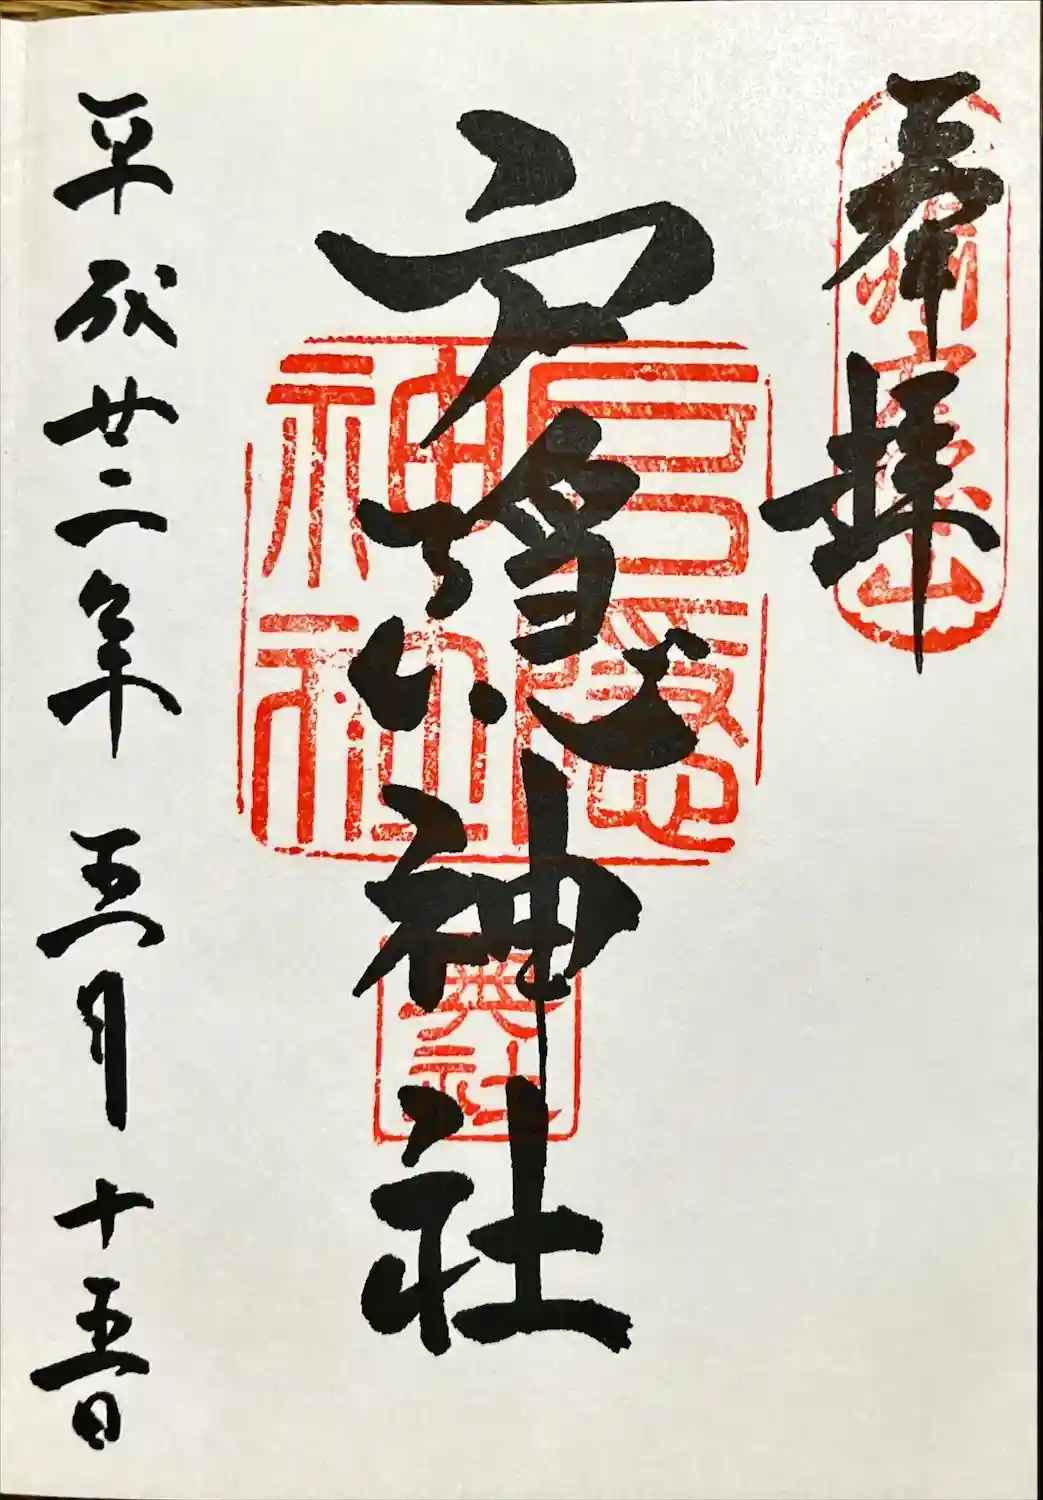 奉拝
信州戸隠山
戸隠神社
戸隠神社
奥社
平成廿二年五月十五日